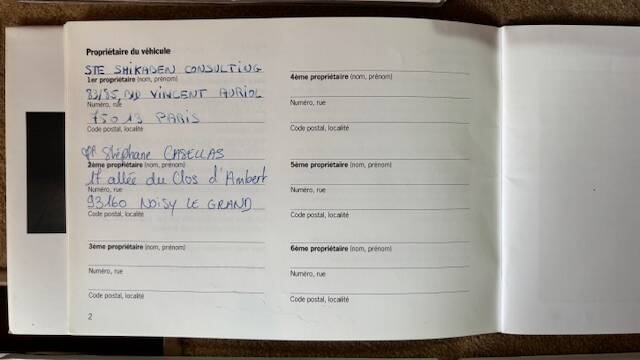 Propriétaire du véhicule
STE SHIKADEN CONSULTING
1er propriétaire (nom, prénom)
83/85, BD VINCENT AURIOL
Numéro, rue
75013 PARIS
Code postal, localité
Mr Stéphane CASELLAS
2ème propriétaire (nom, prénom)
17 allée du Clos d'Ambert
Numéro, rue
93160 NOISY LE GRAND
Code postal, localité
3ème propriétaire (nom, prénom)
Numéro, rue
Code postal, localité
2
4ème propriétaire (nom, prénom)
Numéro, rue
Code postal, localité
5ème propriétaire (nom, prénom)
Numéro, rue
Code postal, localité
6ème propriétaire (nom, prénom)
Numéro, rue
Code postal, localité